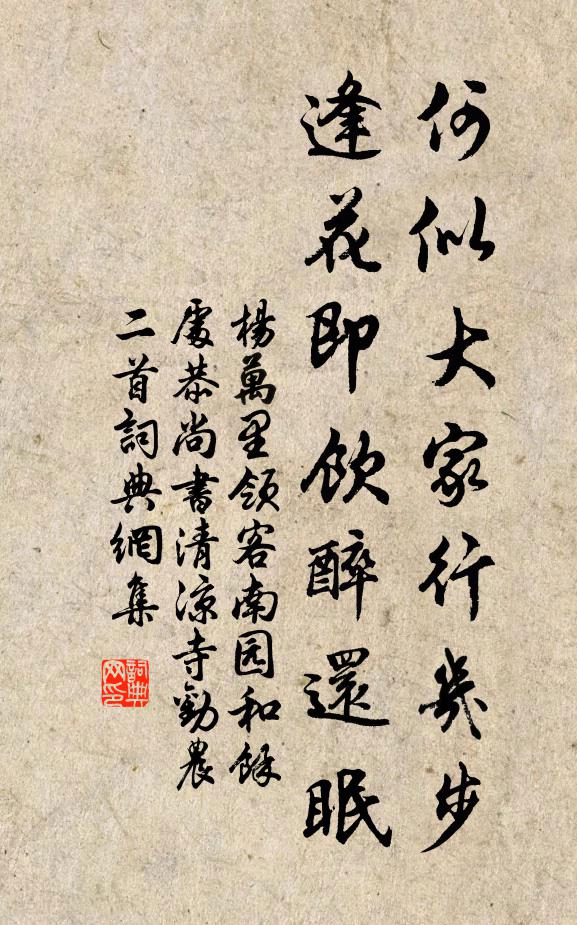 何似大家行幾步
逢花即飲醉還眠
楊萬里領客南园和餘
處恭尚書清涼寺勸農
二首詞典網集
詞典网印